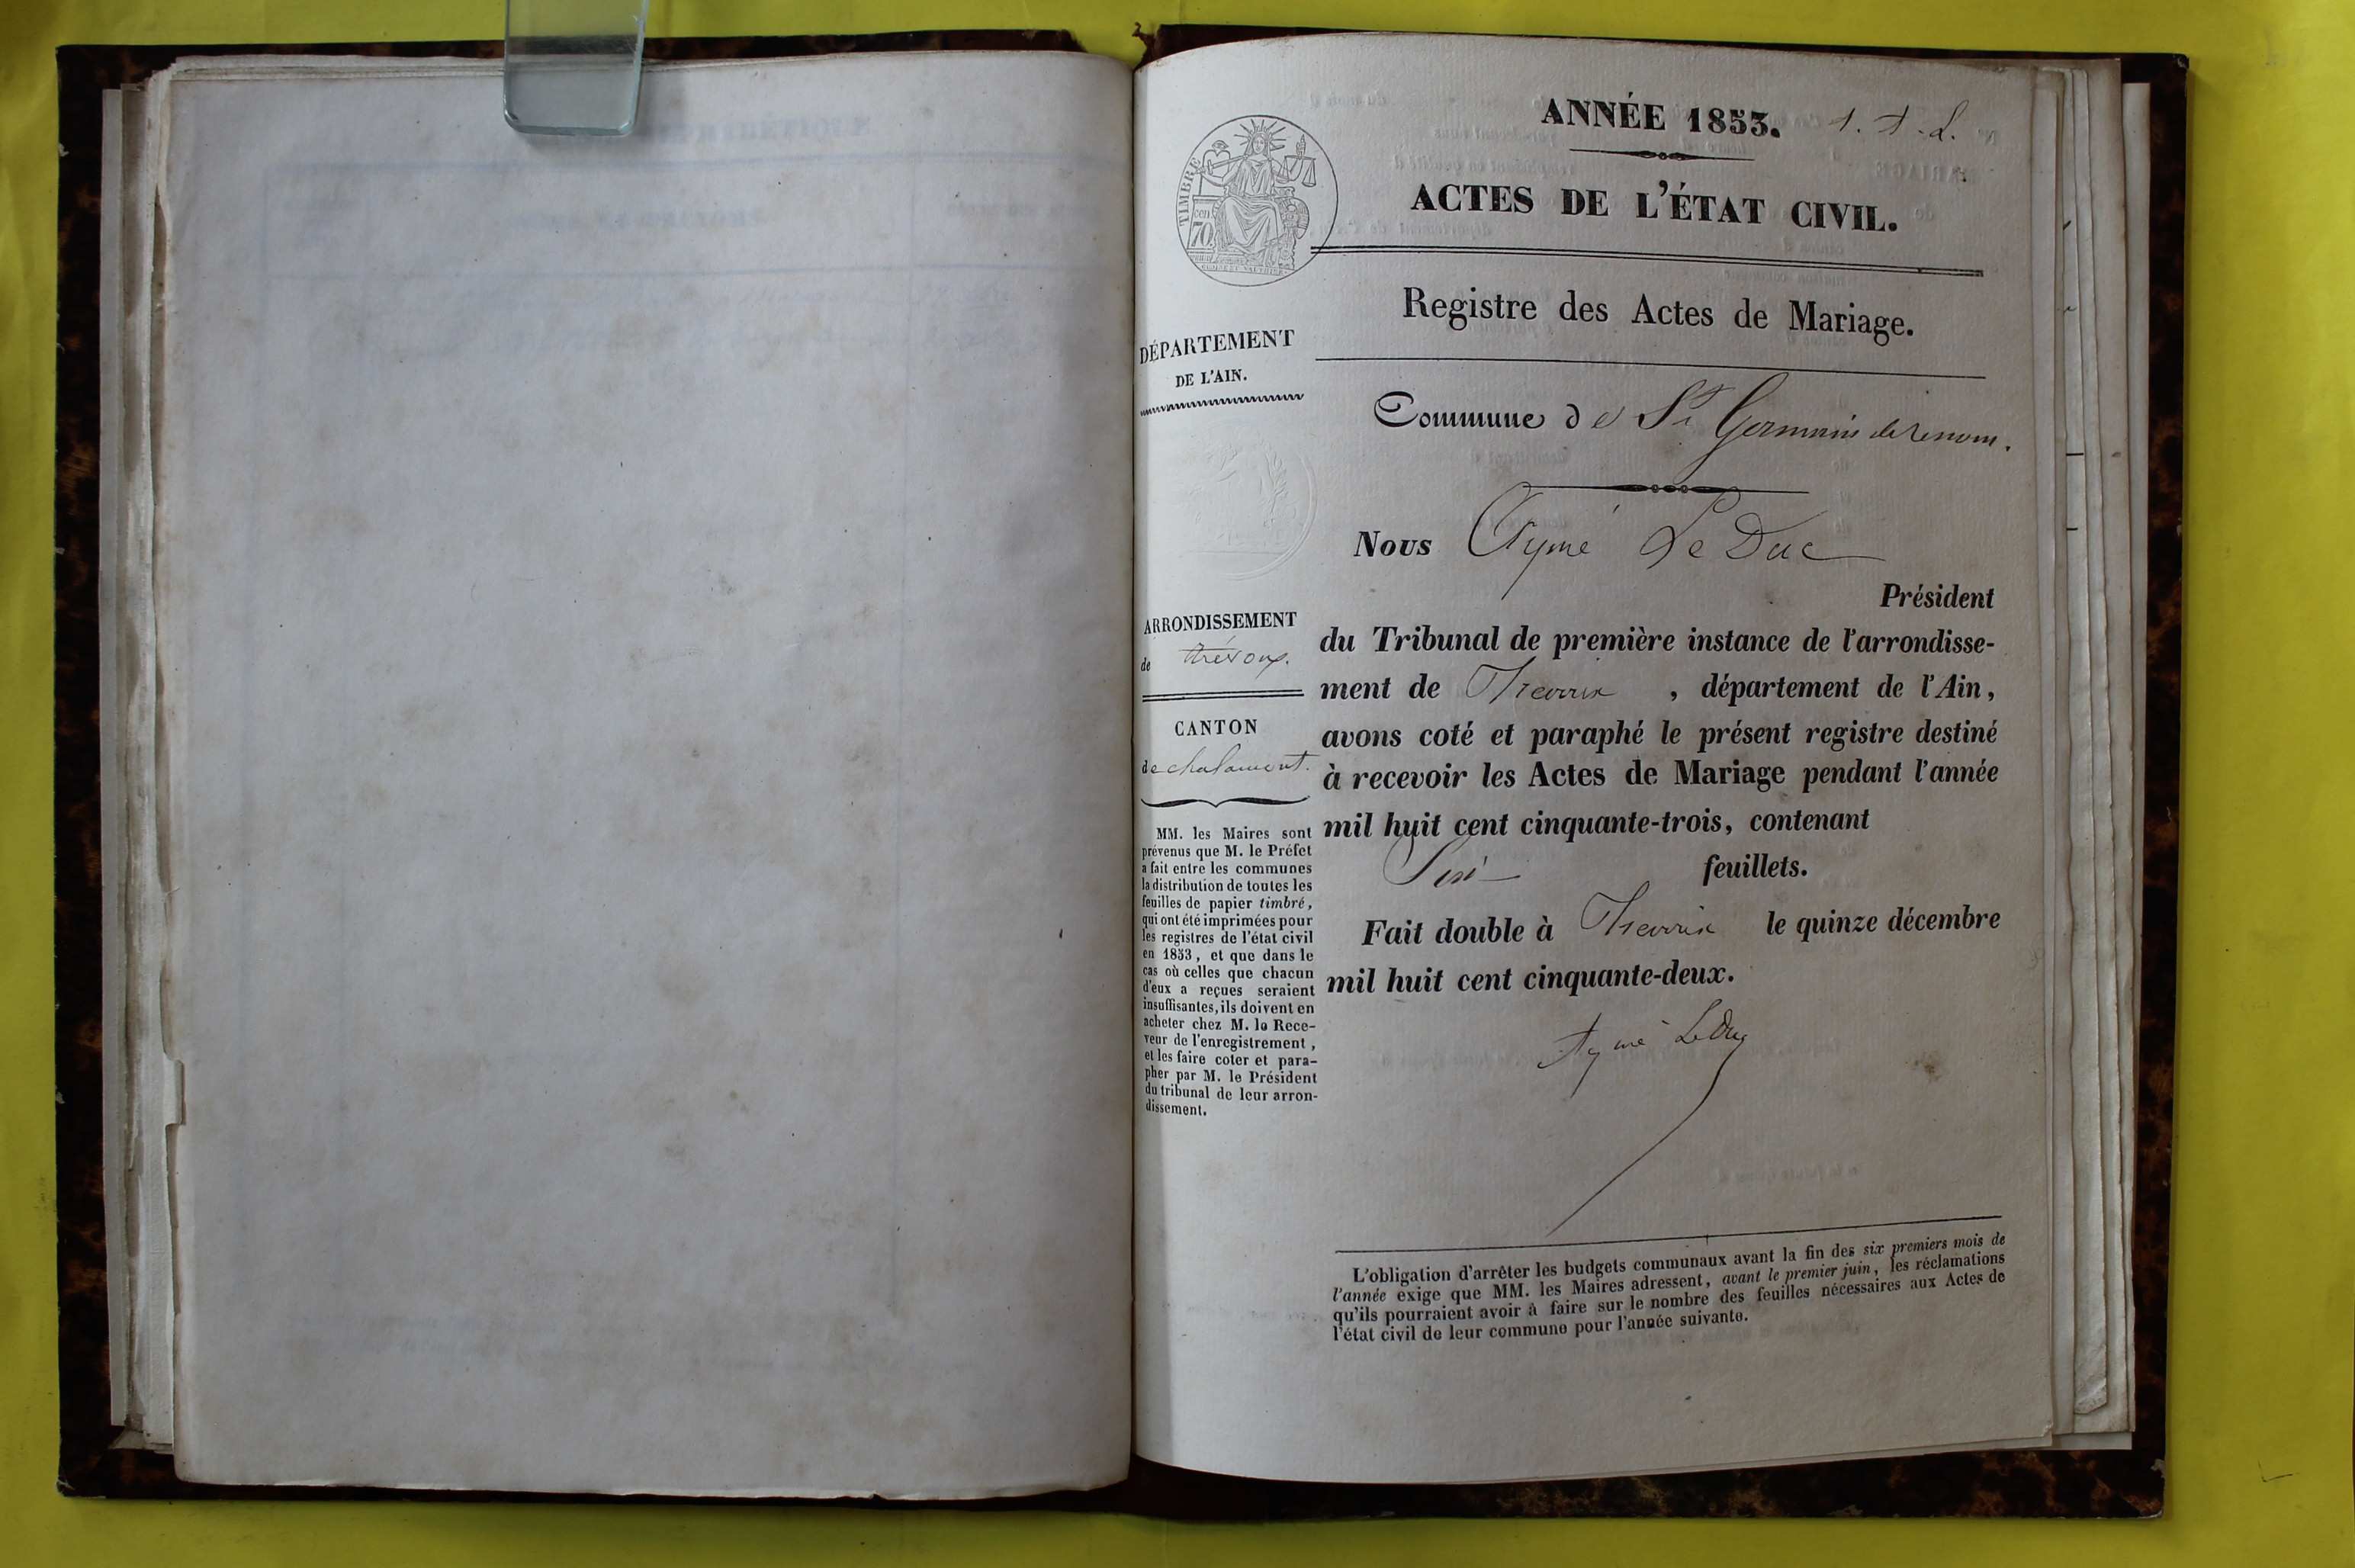 ANNÉE 1853. 1. A. L.
ACTES DE L'ÉTAT CIVIL.
TIMBRE
70 cen
Registre des Actes de Mariage.
DÉPARTEMENT
DE L'AIN.
Commune de St Germain de renom.
Nous Aymé Le Duc
Président
du Tribunal de première instance de l'arrondisse-
ment de Trevoux, département de l'Ain,
avons coté et paraphé le présent registre destiné
à recevoir les Actes de Mariage pendant l'année
mil huit cent cinquante-trois, contenant
Six feuillets.
Fait double à Trevoux le quinze décembre
mil huit cent cinquante-deux.
Aymé LeDuc
ARRONDISSEMENT
de trévoux.
CANTON
de chalamont.
MM. les Maires sont
prévenus que M. le Préfet
a fait entre les communes
la distribution de toutes les
feuilles de papier timbré,
qui ont été imprimées pour
les registres de l'état civil
en 1853, et que dans le
cas où celles que chacun
d'eux a reçues seraient
insuffisantes, ils doivent en
acheter chez M. le Rece-
veur de l'enregistrement,
et les faire coter et para-
pher par M. le Président
du tribunal de leur arron-
dissement.
L'obligation d'arrêter les budgets communaux avant la fin des six premiers mois de
l'année exige que MM. les Maires adressent, avant le premier juin, les réclamations
qu'ils pourraient avoir à faire sur le nombre des feuilles nécessaires aux Actes de
l'état civil de leur commune pour l'année suivante.